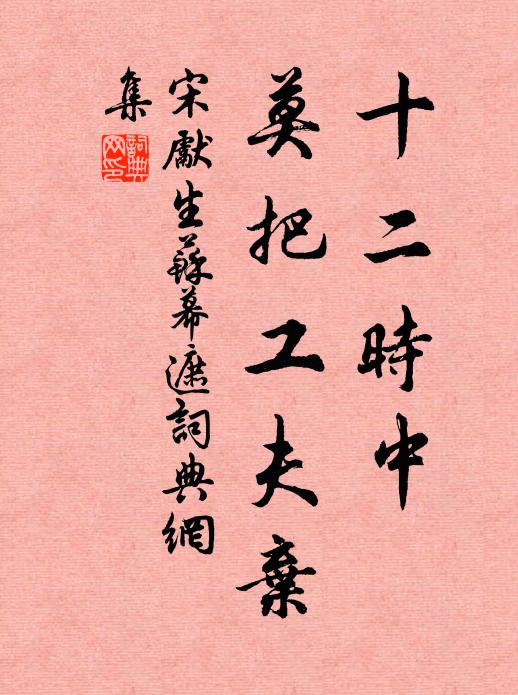 十二時中
莫把工夫棄
宋獻生蘇幕遮詞典網
集
詞典
網印